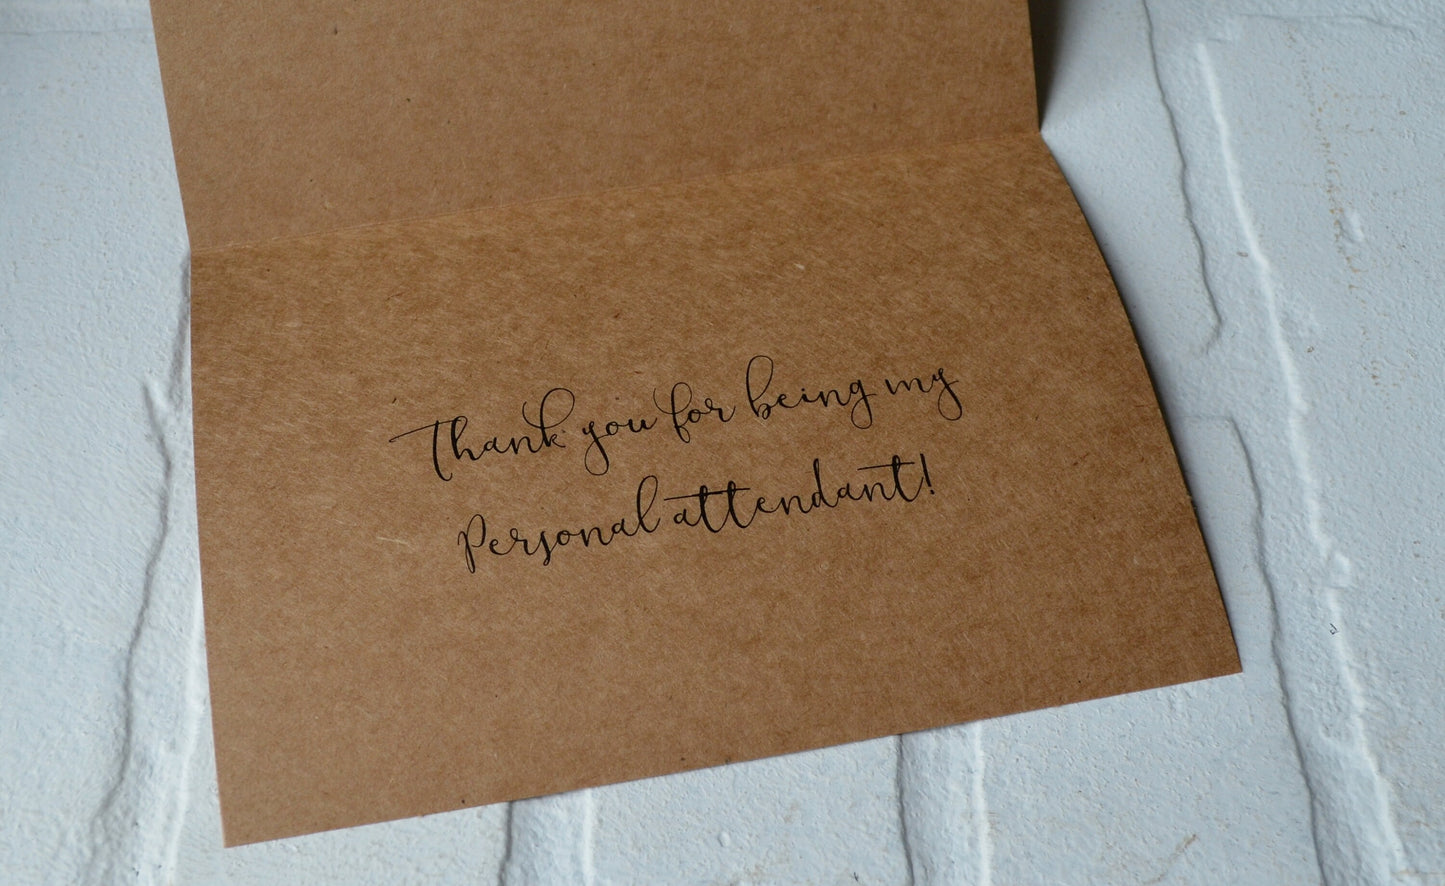 Thank you for being my
Personal attendant!